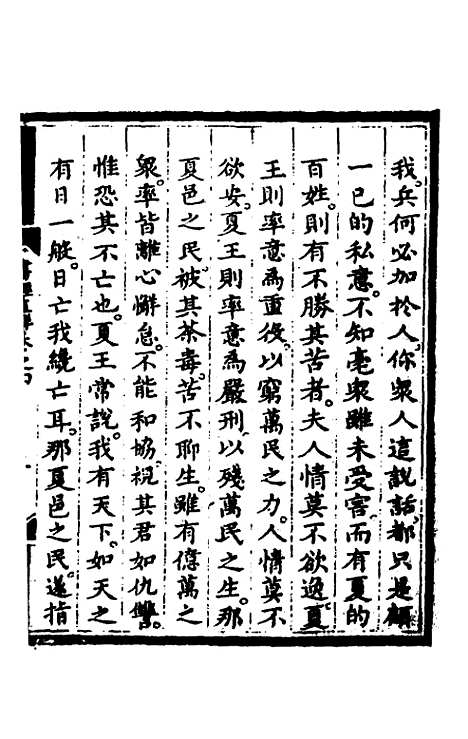 我兵何必加於人你衆人這說話都只是顧
一己的私意不知亳衆雖未受害而有夏的
百姓則有不勝其苦者夫人情莫不欲逸夏
王則率意爲重役以窮萬民之力人情莫不
欲安夏王則率意爲嚴刑以殘萬民之生那
夏邑之民被其荼毒苦不聊生雖有億萬之
衆率皆離心懈怠不能和協視其君如仇讐
惟恐其不亡也夏王常說我有天下如天之
有日一般日亡我纔亡耳那夏邑之民遂指